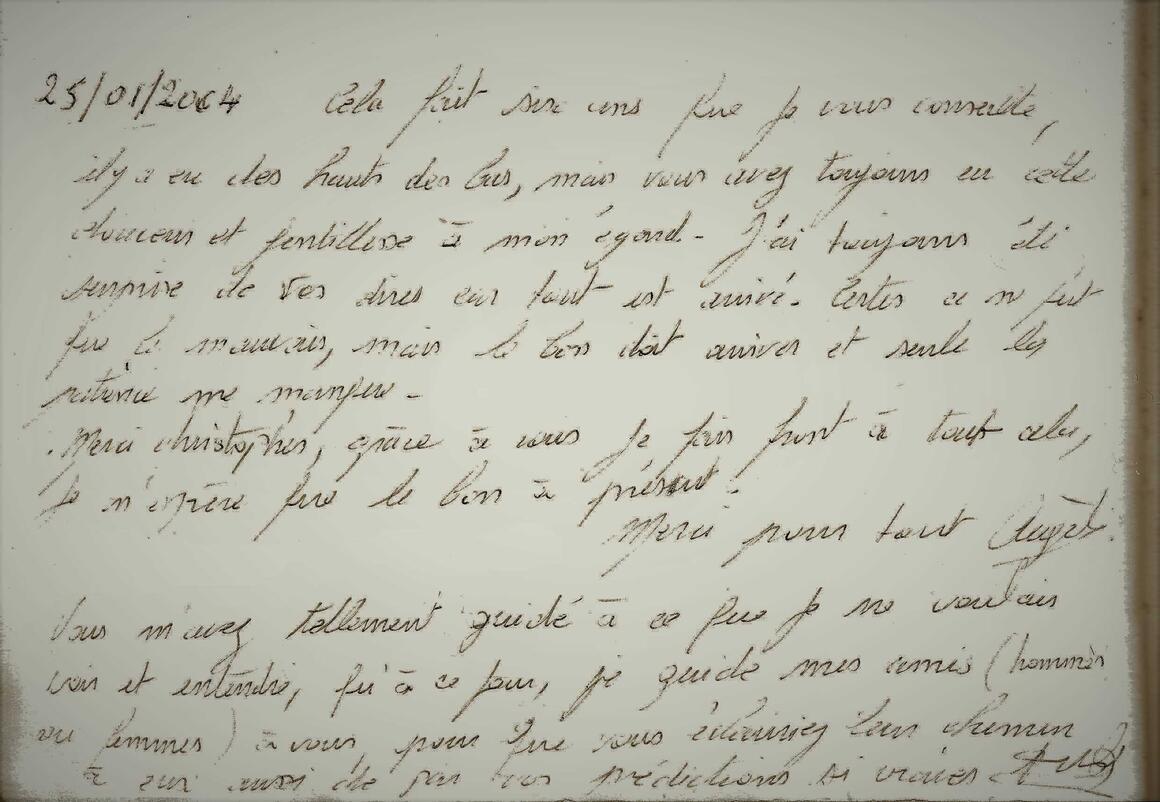 25/01/2004 Cela fait six ans que je vous consulte,
il y a eu des hauts des bas, mais vous avez toujours eu cette
douceur et gentillesse à mon égard - J'ai toujours été
surprise de vos dires car tout est arrivé. Certes ce ne fut
que le mauvais, mais le bon doit arriver et seule la
patience me manque -
Merci christophes, grâce à vous je fais front à tout cela,
Je n'espère que le bon à présent.
Merci pour tout
Vous m'avez tellement guidé à ce que je ne voulais
voir et entendre, qu'à ce jour, je guide mes amis (hommes
ou femmes) à vous, pour que vous éclairiez leur chemin
à eux aussi de par vos prédictions si vraies